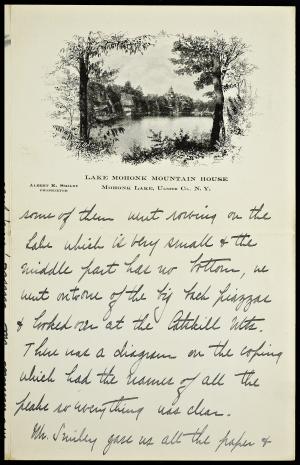 LAKE MOHONK MOUNTAIN HOUSE
ALBERT K. SMILEY
PROPRIETOR
MOHONK LAKE, ULSTER CO., N. Y.
some of them went rowing on the
Lake which is very small & the
middle part has no bottom, we
went out one of the big back piazzas
& looked over at the Catskill Mts.
There was a diagram on the coping
which had the names of all the
peaks so everything was clear.
Mr. Smiley gave us all the paper &